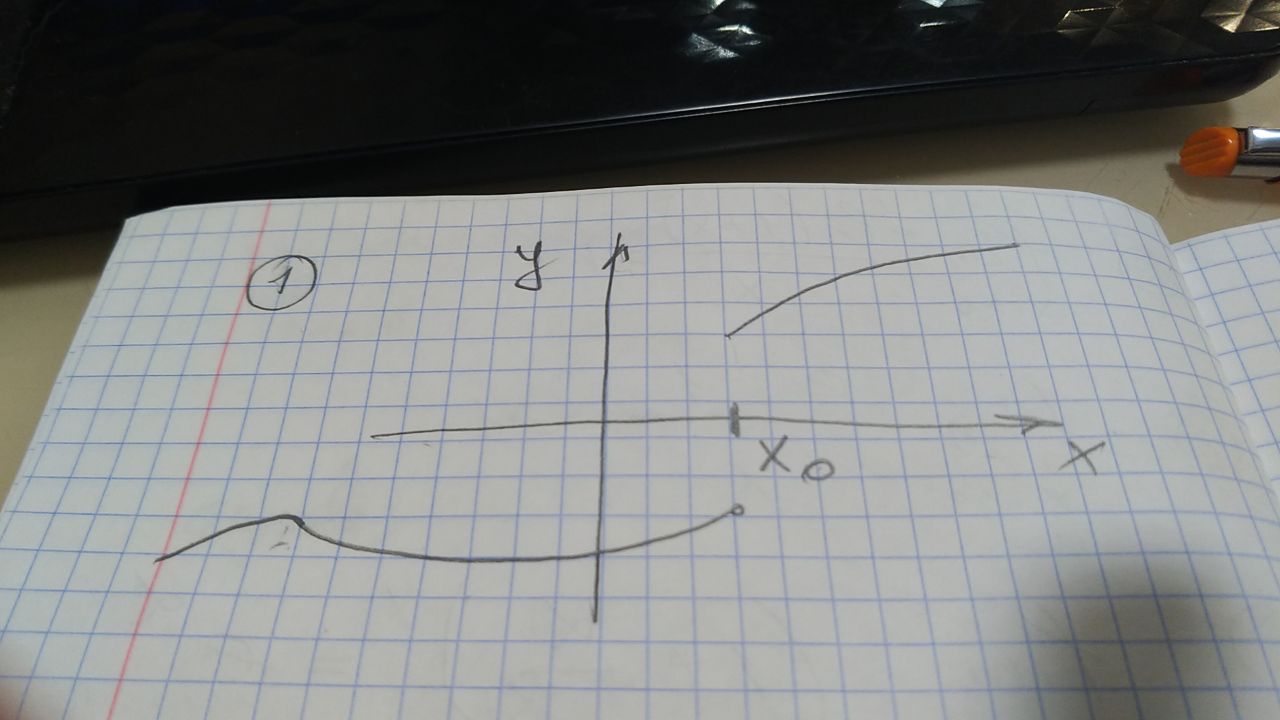 1
y
x₀
x